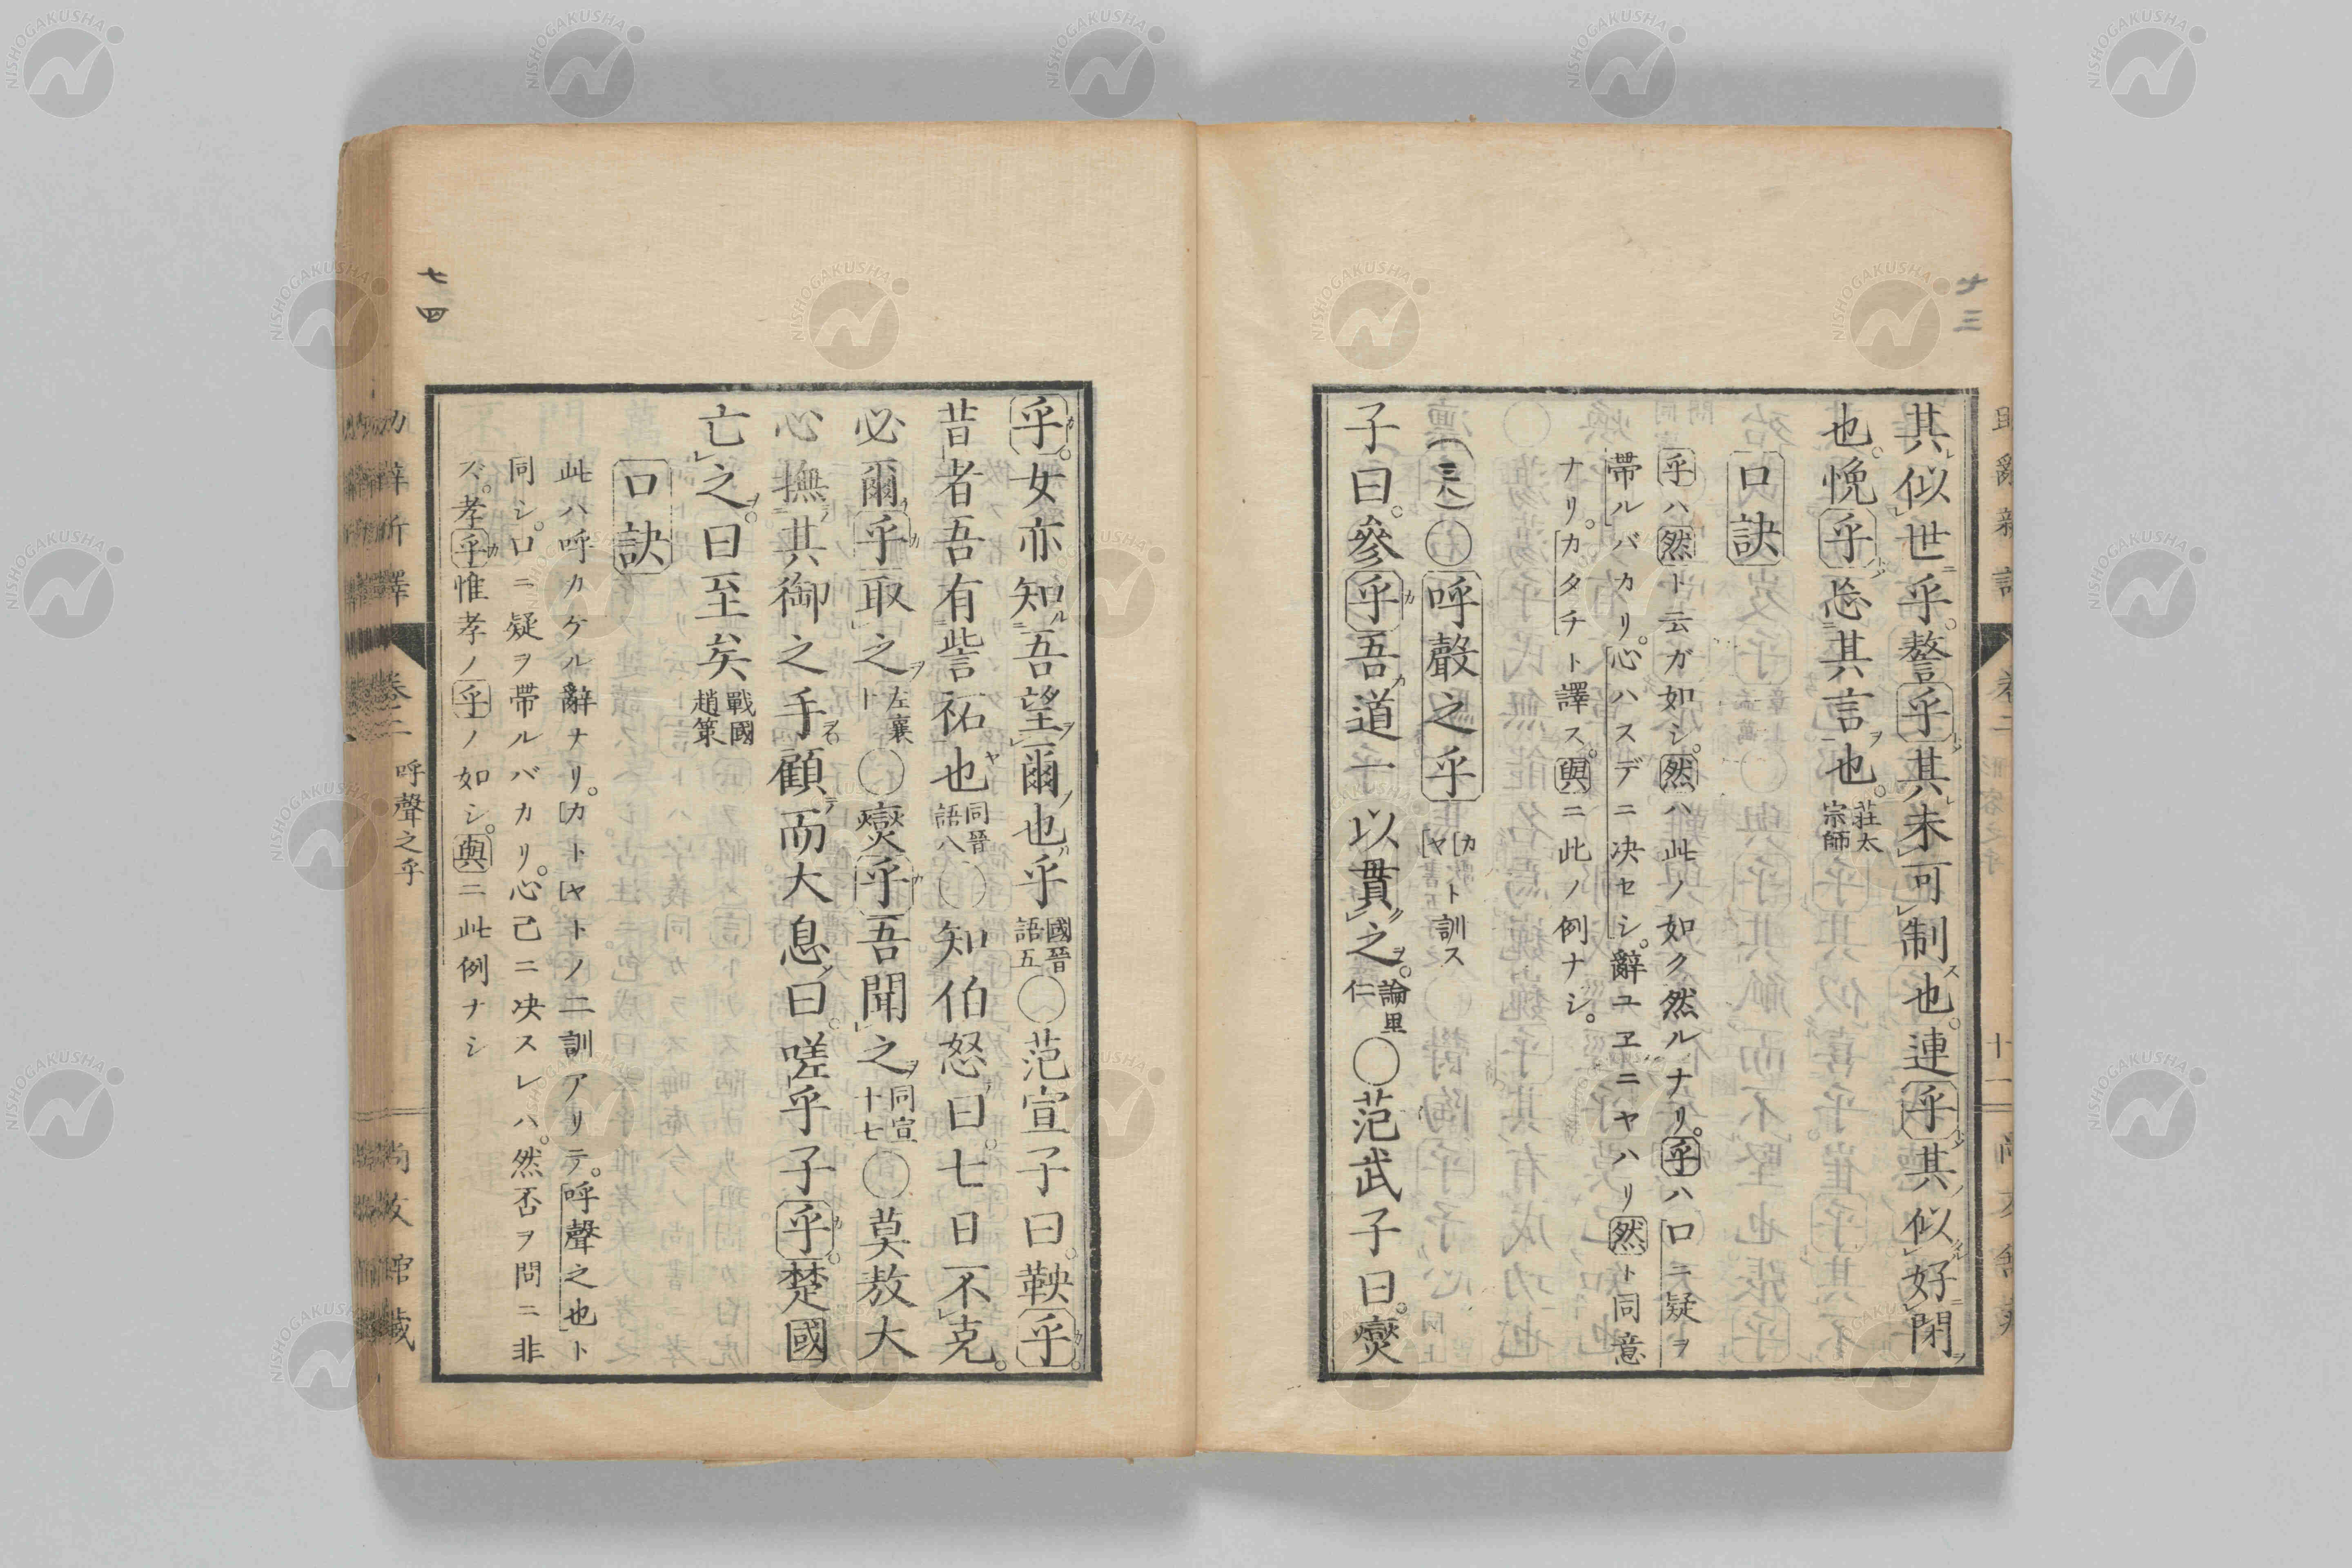 其似世乎。謷乎其未可制也。連乎其似好閉
也。悗乎忘其言也。莊太宗師
口訣
乎ハ然ト云ガ如シ。然ハ此ノ如ク然ルナリ。乎ハ口ニ疑ヲ
帶ルバカリ。心ハスデニ决セシ。辭ユヱニヤハリ然ト同意
ナリ。カタチト譯ス。與ニ此ノ例ナシ。
(三八)〇呼聲之乎 カヤト訓ス
子曰。參乎吾道一以貫之。論里仁〇范武子曰。燮
乎。女亦知吾望爾也乎國晉語五〇范宣子曰。鞅乎。
昔者吾有訾祏也同晉語八〇知伯怒曰。七日不克。
必爾乎取之左襄十〇燮乎吾聞之同宣十七〇莫敖大
心撫其御之手顧而大息曰。嗟乎子乎。楚國
亡之。曰至矣戰國趙策
口訣
此ハ呼カケル辭ナリ。カトヤトノ二訓アリテ。呼聲之也ト
同シ。口ニ疑ヲ帶ルバカリ。心己ニ决スレハ。然否ヲ問ニ非
ズ。孝乎惟孝ノ乎ノ如シ。與ニ此例ナシ
卷二 呼聲之乎
七四
十三
NISHOGAKUSHA